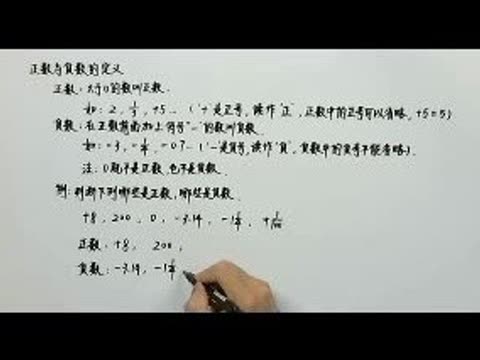 正数与负数的定义
正数：大于0的数叫正数．
如：2，1/3，+5…（'+'是正号，读作"正"，正数中的正号可以省略，+5=5）
负数：在正数前面加上符号"－"的数叫负数．
如：-3，-1/4，-0.7…（'－'是负号，读作"负"，负数中的负号不能省略）．
注：0既不是正数，也不是负数．
例：判断下列哪些是正数，哪些是负数．
+8，200，0，-3.14，，+1/100
正数：+8，200，
负数：-3.14，